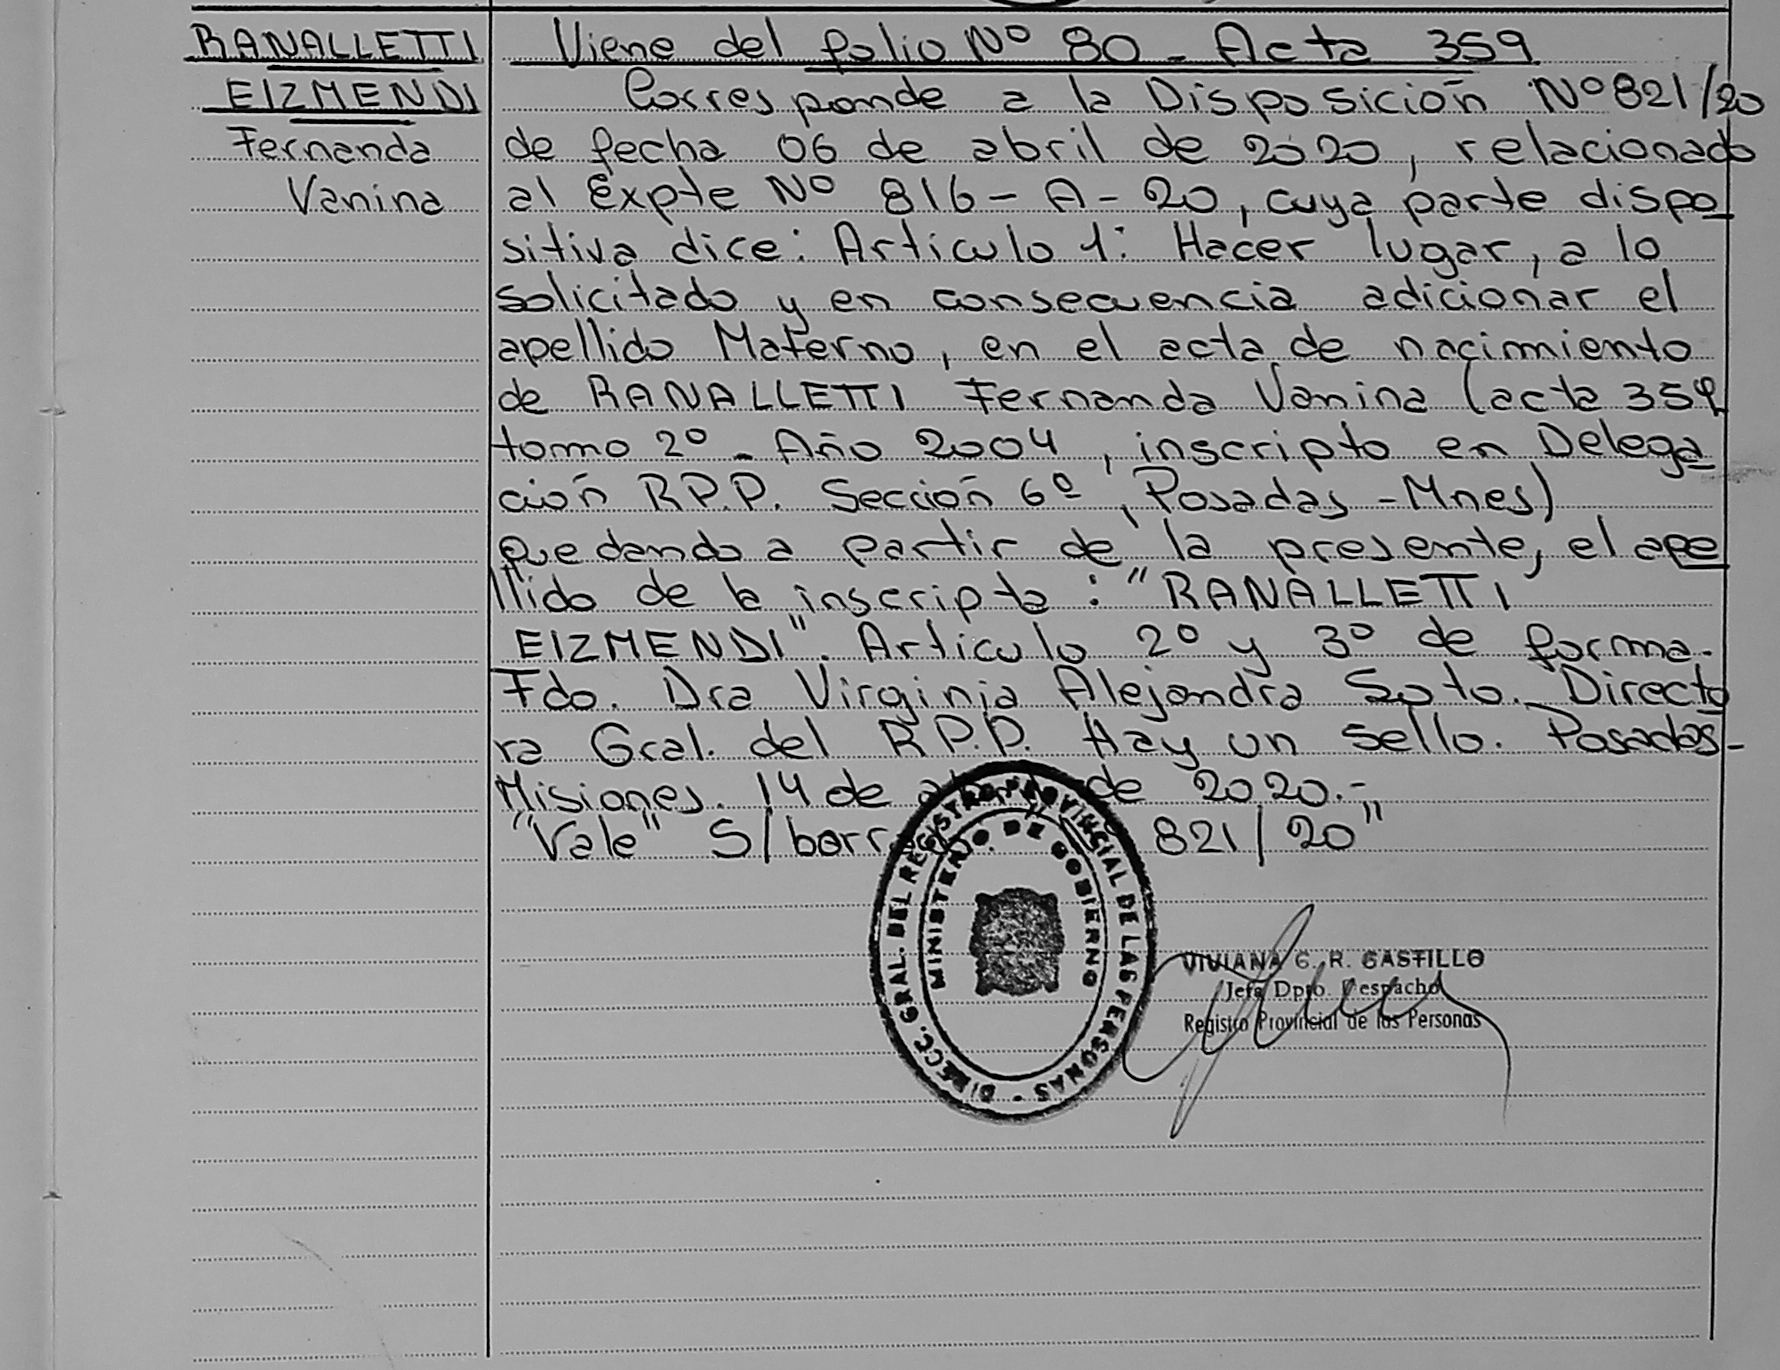 RANALLETTI
EIZMENDI
Fernanda
Vanina
Viene del folio Nº 80 - Acta 359
Corresponde a la Disposición Nº 821/20
de fecha 06 de abril de 2020, relacionado
al Expte Nº 816 - A - 20, cuya parte dispo
sitiva dice: Articulo 1: Hacer lugar, a lo
solicitado y en consecuencia adicionar el
apellido Materno, en el acta de nacimiento
de RANALLETTI Fernanda Vanina (acta 359
tomo 2º - Año 2004, inscripto en Delega
ción R.P.P. Sección 6º, Posadas - Mnes)
quedando a partir de la presente, el ape
llido de la inscripta: "RANALLETTI
EIZMENDI". Articulo 2º y 3º de forma.
Fdo. Dra Virginia Alejandra Soto. Directo
ra Gral. del R.P.P. Hay un sello. Posadas-
Misiones. 14 de de 2020.-
"Vale" S/ 821/20"
DIRECC. GRAL. DEL REGISTRO PROVINCIAL DE LAS PERSONAS -
MINISTERIO DE GOBIERNO
VIVIANA G. R. CASTILLO
Jefa Dpto. Despacho
Registro Provincial de las Personas